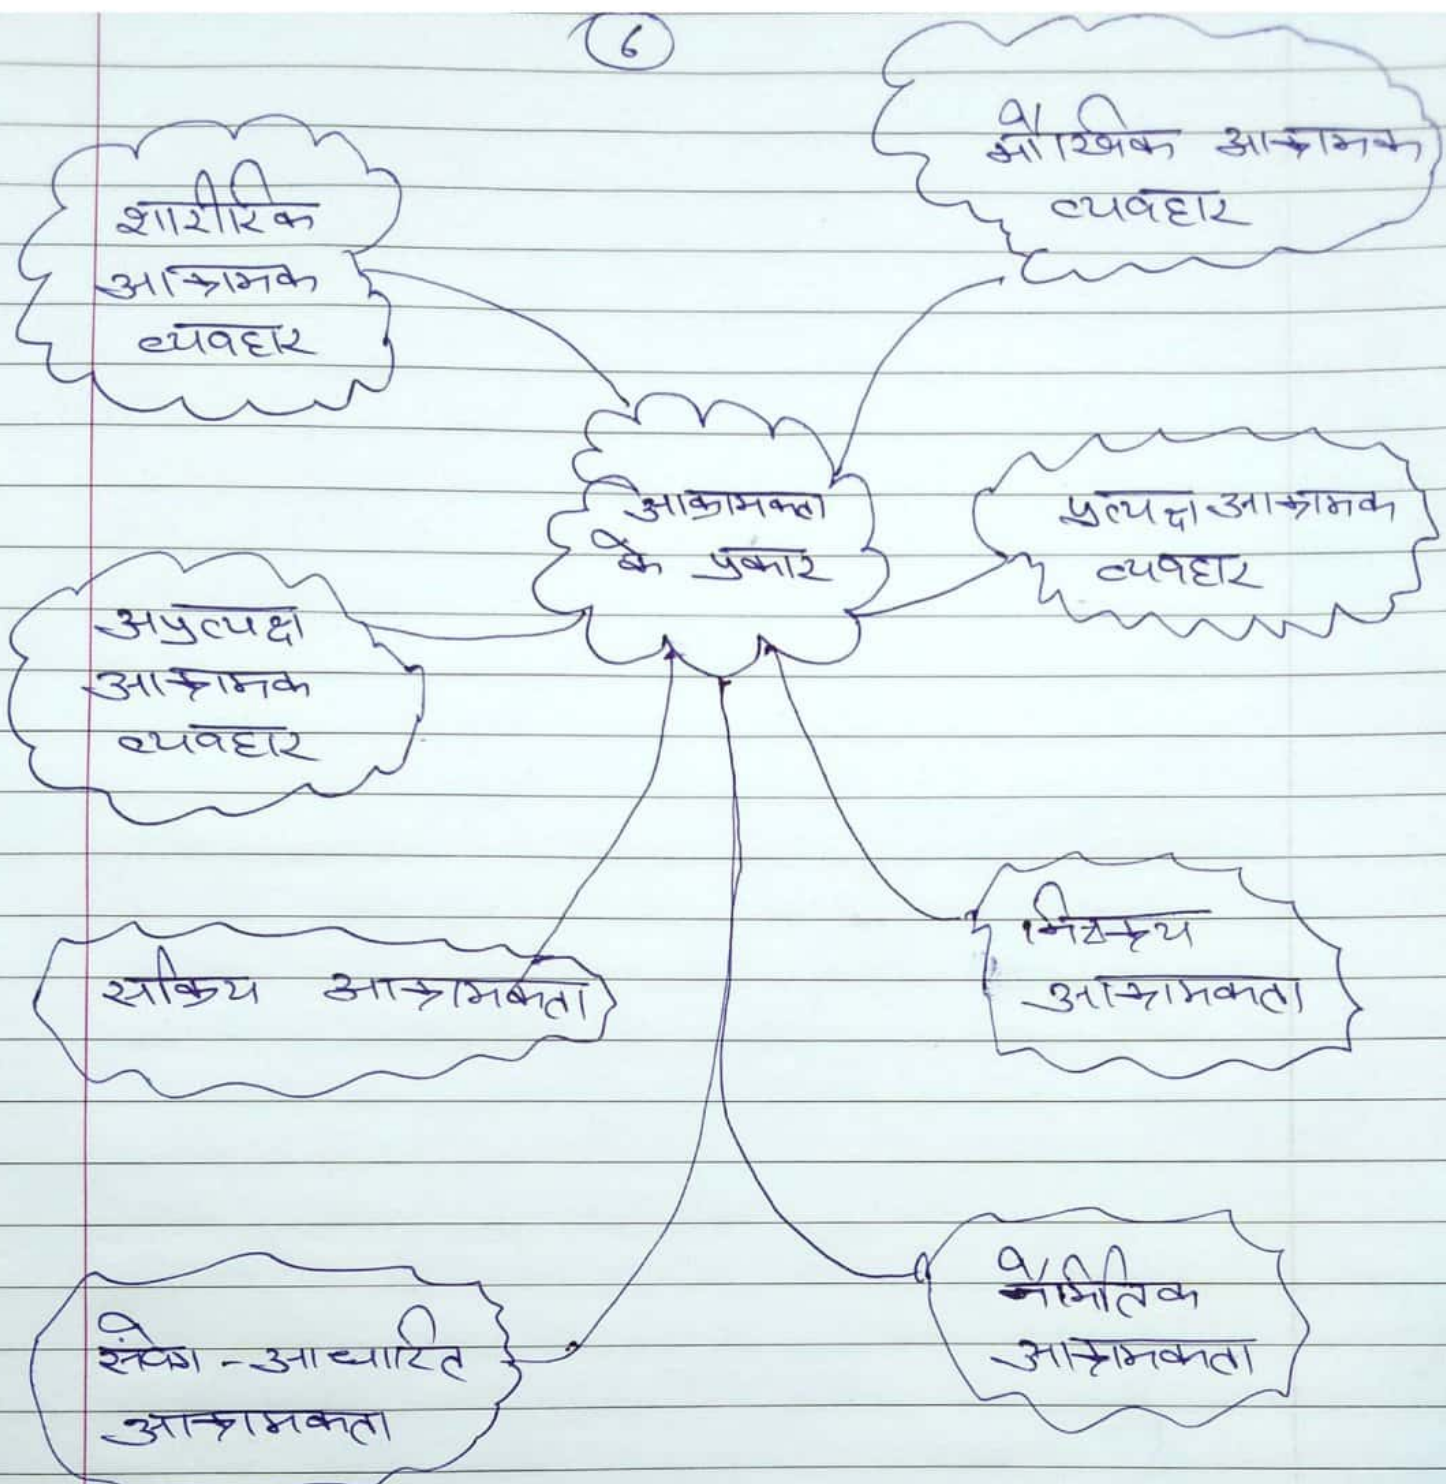 6
शारीरिक
आक्रामक
व्यवहार
मौखिक आक्रामक
व्यवहार
आक्रामकता
के प्रकार
प्रत्यक्ष आक्रामक
व्यवहार
अप्रत्यक्ष
आक्रामक
व्यवहार
सक्रिय आक्रामकता
निष्क्रय
आक्रामकता
संवेग-आधारित
आक्रामकता
नैमितिक
आक्रामकता